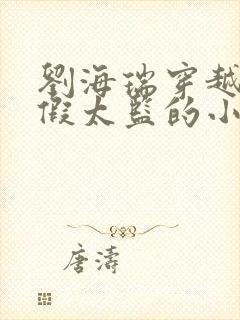 劉海瑞穿越
假太監的小
唐濤